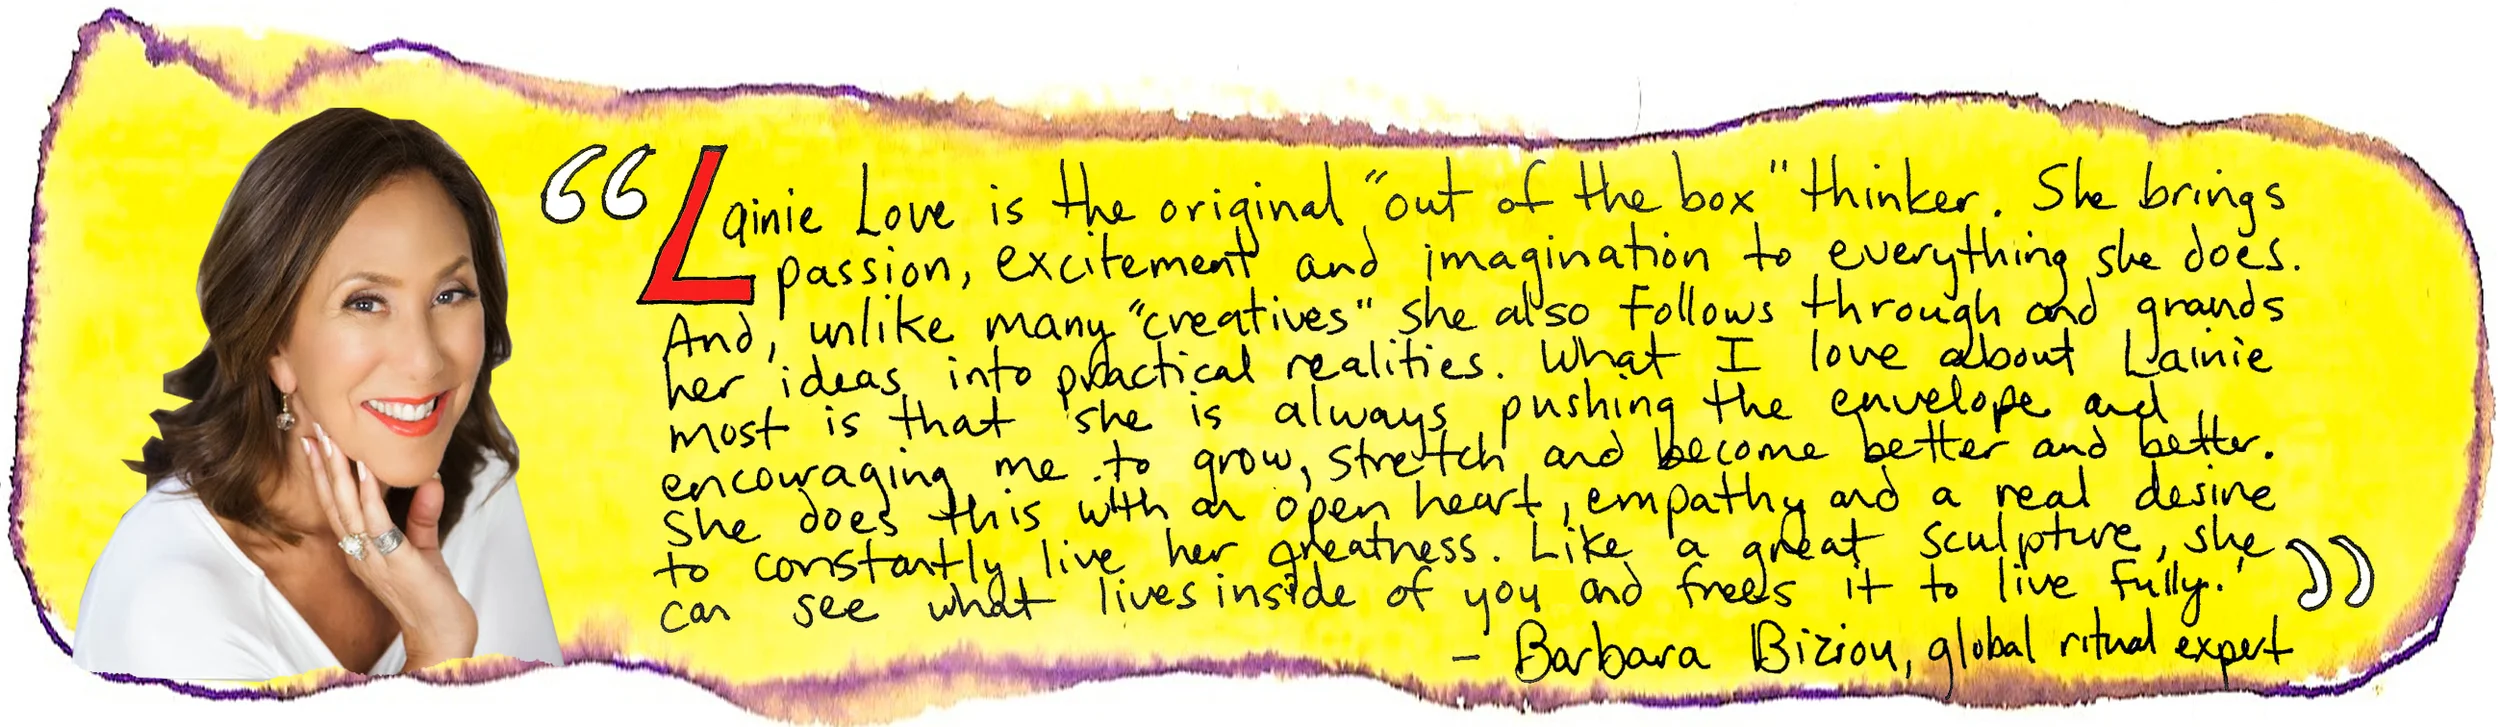 “Lainie Love is the original “out of the box” thinker. She brings
passion, excitement and imagination to everything she does.
And, unlike many “creatives” she also follows through and grands
her ideas into practical realities. What I love about Lainie
most is that she is always pushing the envelope and
encouraging me to grow, stretch and become better and better.
She does this with an open heart, empathy and a real desire
to constantly live her greatness. Like a great sculpture, she
can see what lives inside of you and frees it to live fully.”
- Barbara Biziou, global ritual expert